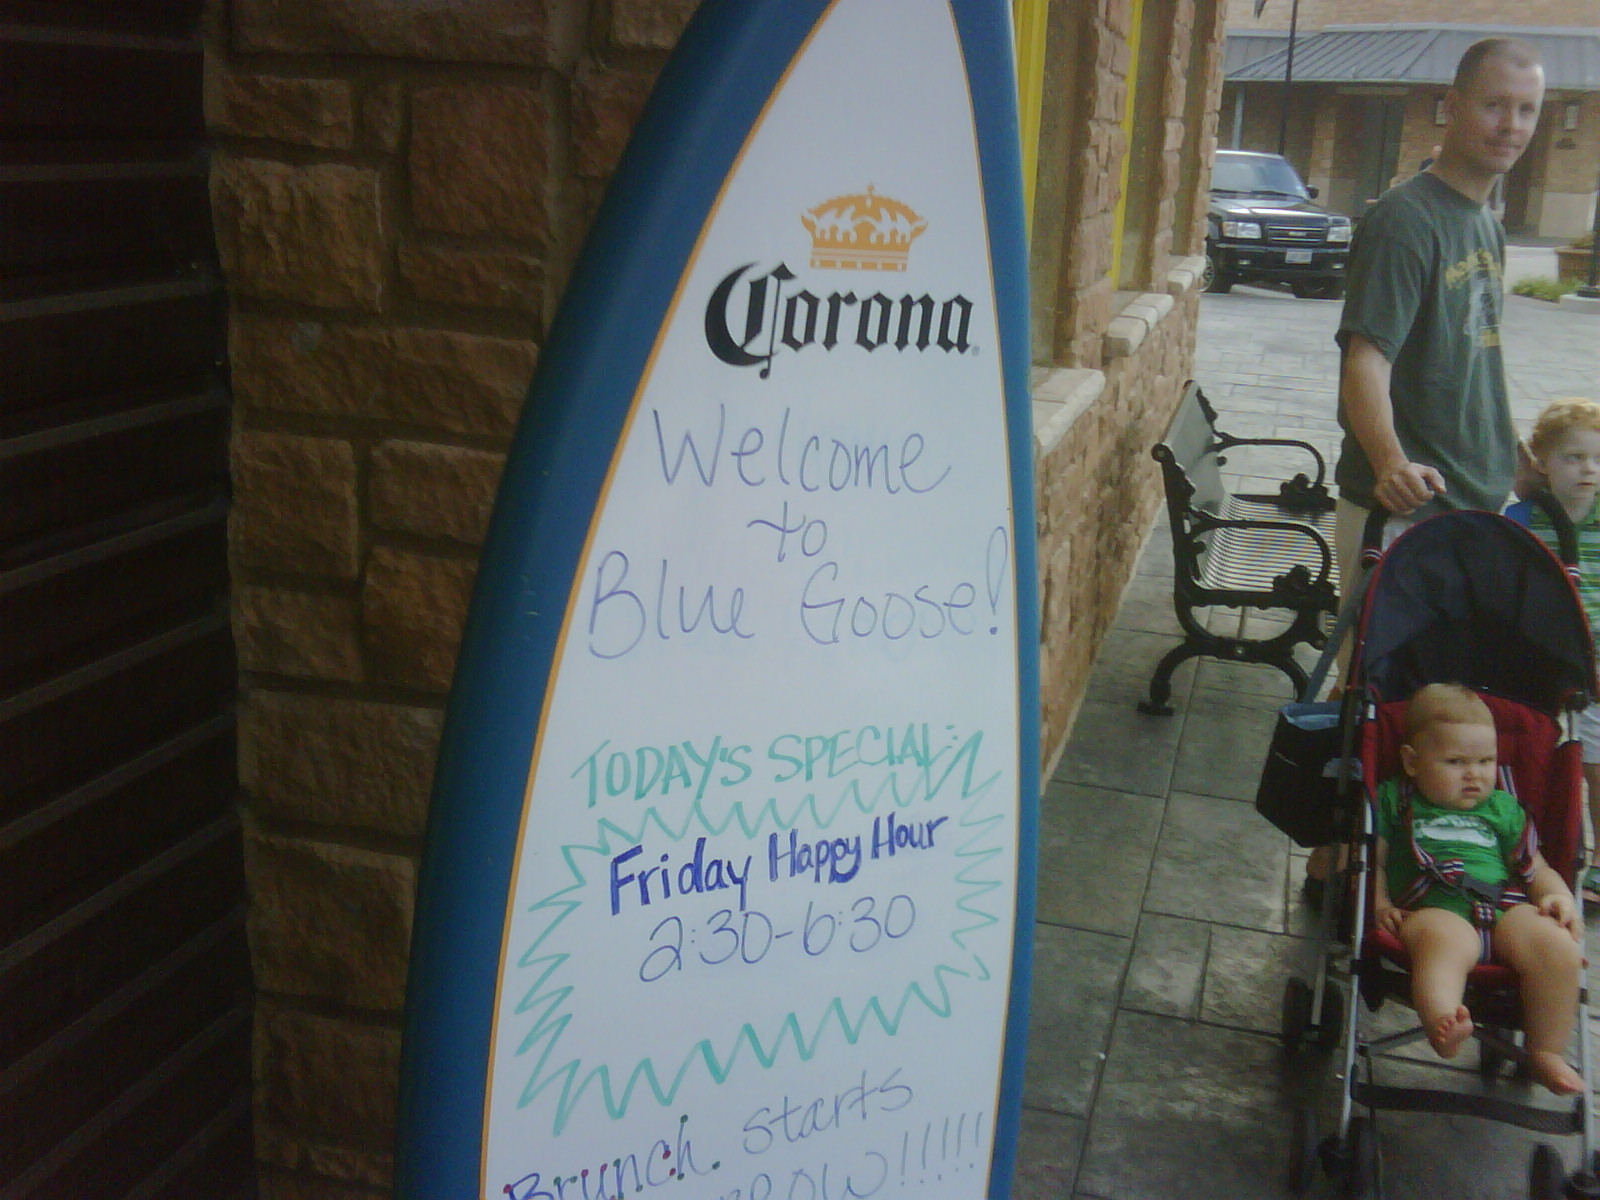 Corona
Welcome
to
Blue Goose!
TODAY'S SPECIAL:
Friday Happy Hour
2:30-6:30
Brunch starts